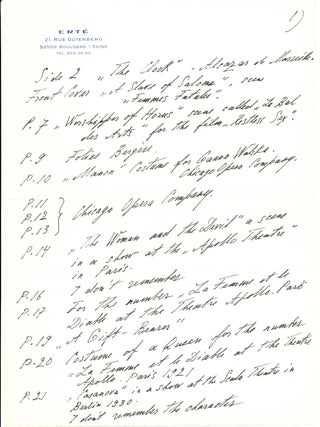 1)
ERTÉ
21, RUE GUTENBERG
92100 BOULOGNE - SEINE
Side 2 "The Clock" - Alcazar de Marseille.
Front Cover "A Slave of Salome", scene
"Femmes Fatales".
P. 7 "Worshipper of Horus" scene called "Le Bal
des Arts" for the film "Restless Sex"
P. 9 Folies Bergère.
P-10 "Manon" Costume for Ganna Walska.
Chicago Opera Company.
P.11
P.12 } Chicago Opera Company.
P.13
P.14 "The Woman and the Devil" a scene
in a show at the "Apollo Theatre"
in Paris.
P.16 I don't remember
P.17 For the number "La Femme et le
Diable at the Theatre Apollo. Paris
P.19 "A Gift Bearer"
P-20 Costume of a Queen for the number
"La Femme et le Diable at the Theatre
Apollo. Paris 1921
P.21 "Casanova" in a show at the Scala Theatre in
Berlin 1930.
I don't remember the character